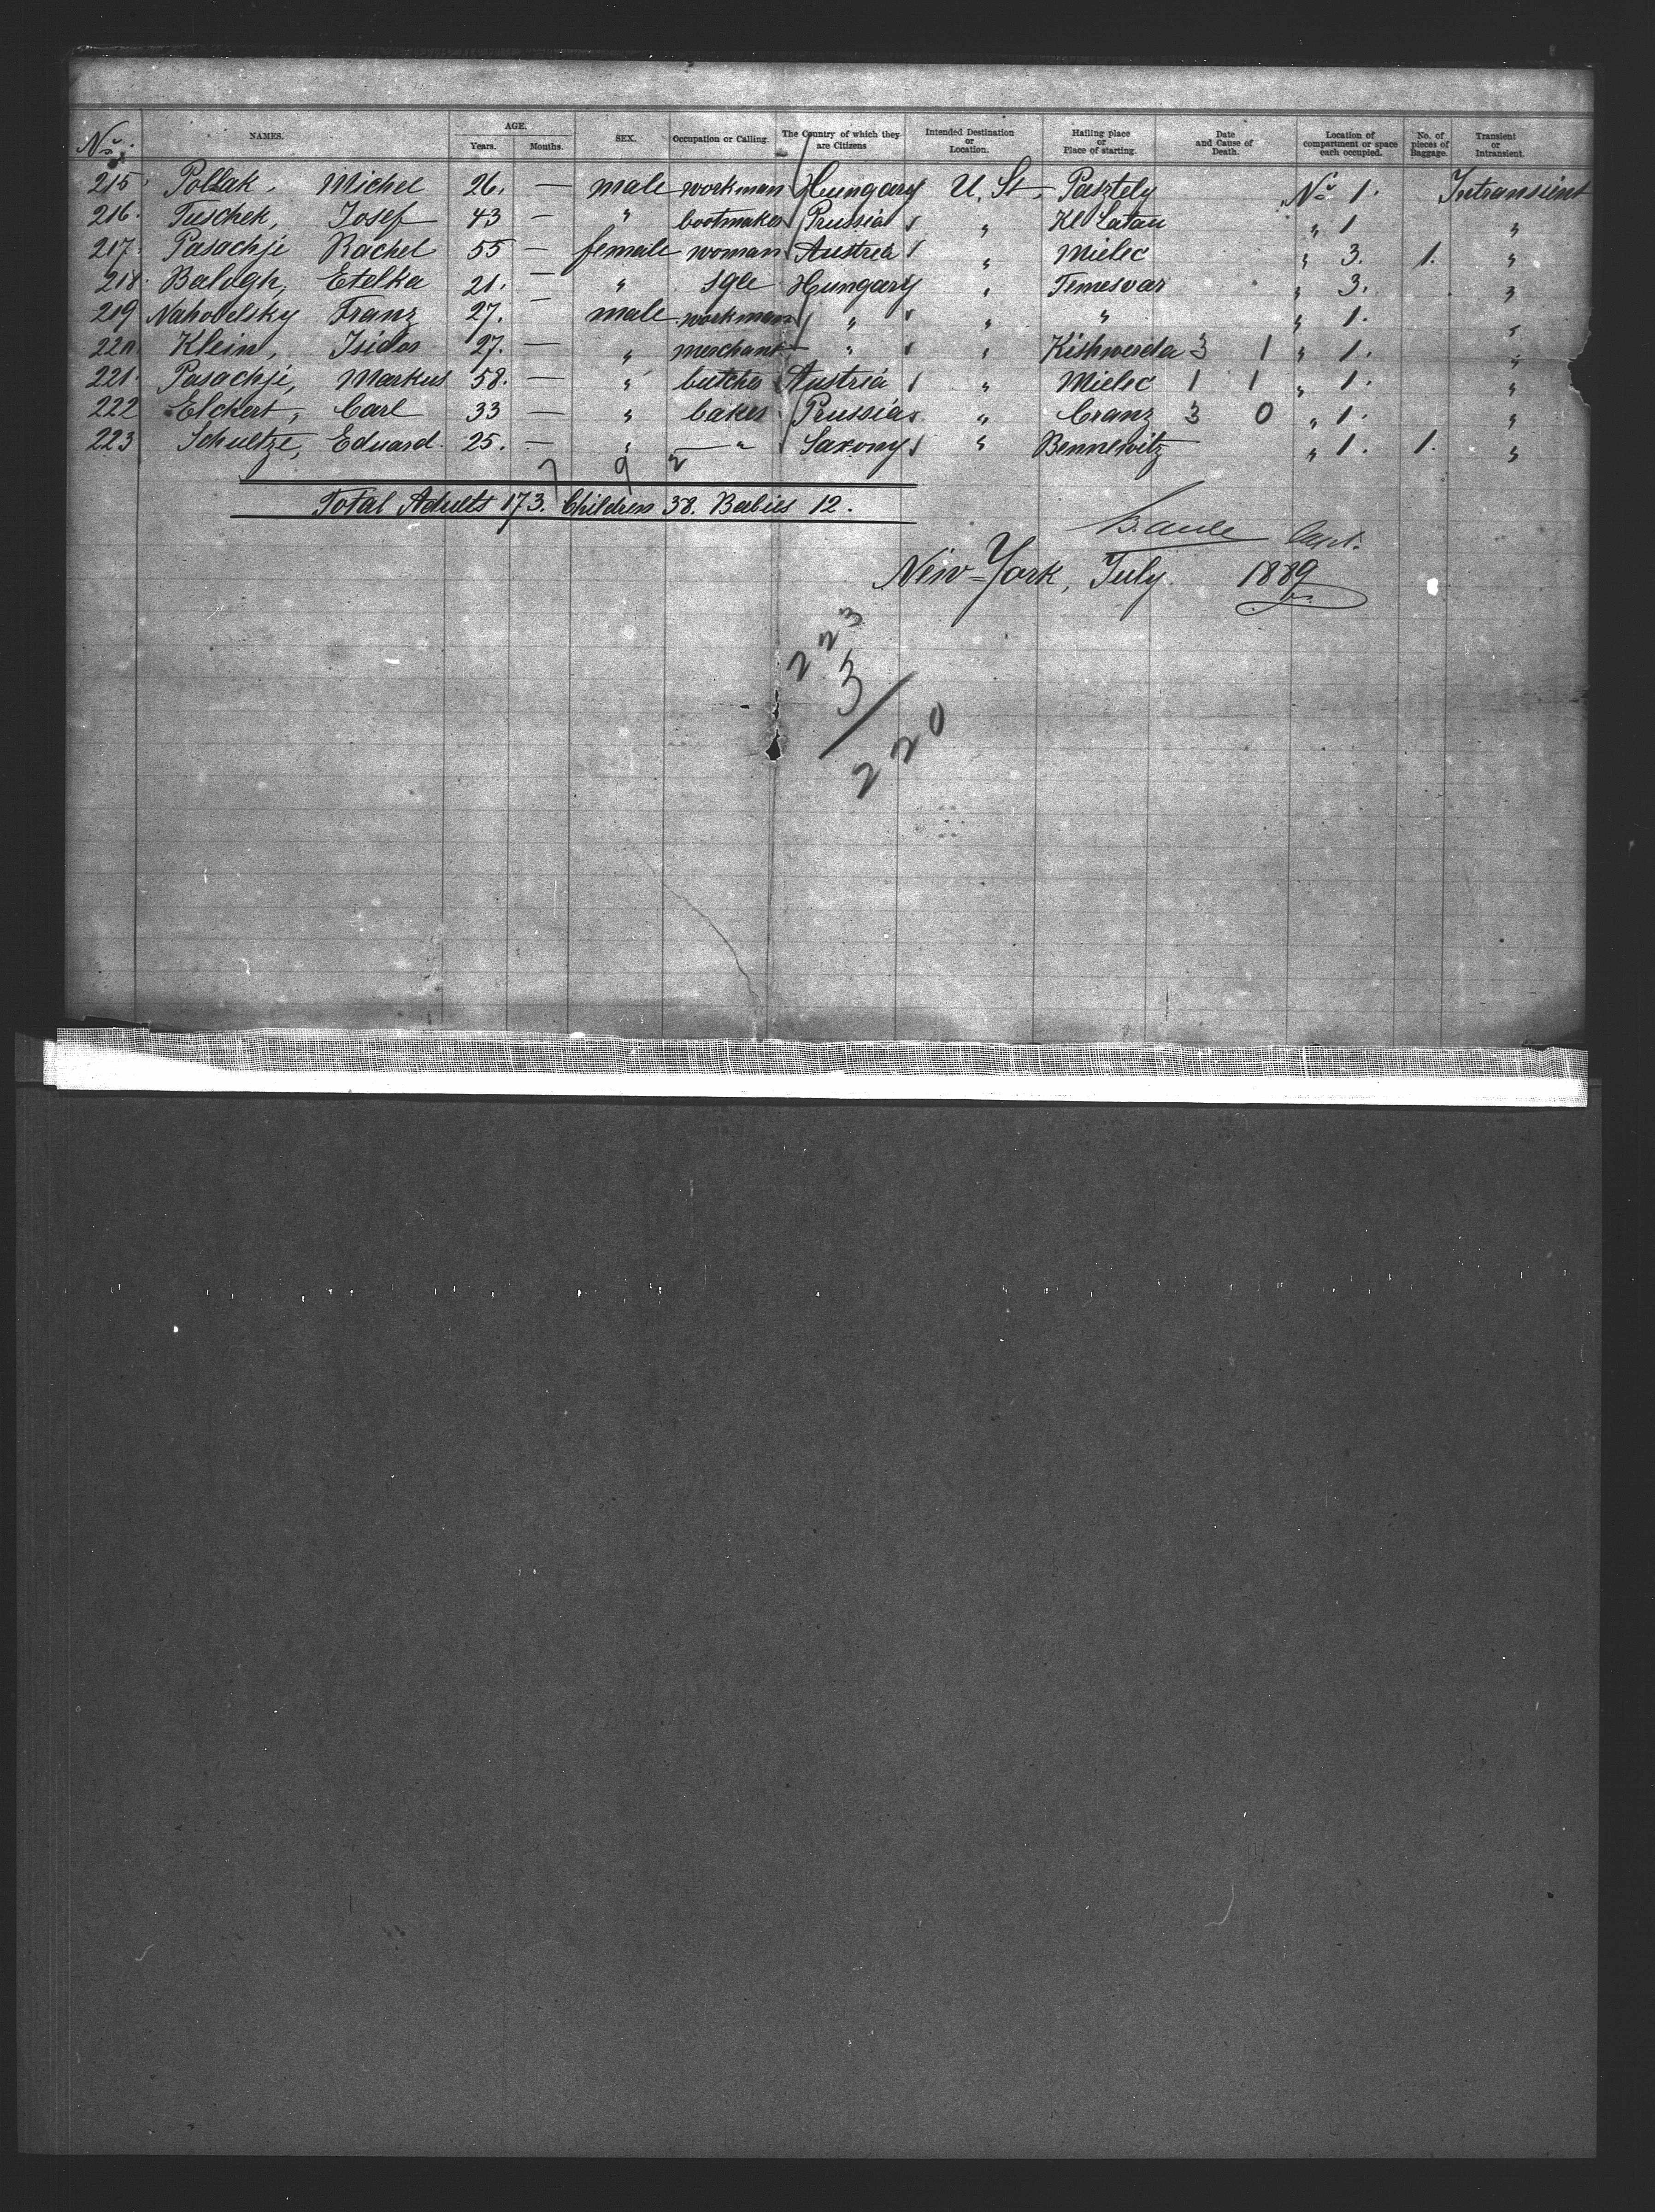 No. NAMES. AGE. Years. Months. SEX. Occupation or Calling. The Country of which they are Citizens Intended Destination or Location. Hailing place or Place of starting. Date and Cause of Death. Location of compartment or space each occupied. No. of pieces of Baggage. Transient or Intransient.
215. Pollak, Michel 26. — male workman Hungary U. St. Pasztely No 1. Intransient
216. Tuschek, Josef 43 — " bootmaker Prussia " Kl Latau " 1 "
217. Pasachji Rachel 55 — female woman Austria " Mielec " 3. 1. "
218. Balogh, Etelka 21. — " sgle Hungary " Temesvar " 3. "
219 Nahodelsky Franz 27. — male workman " " " " 1. "
220. Klein, Isidor 27. — " merchant " " Kishwerda 3 1 " 1. "
221. Pasachji, Markus 58. — " butcher Austria " Mielec 1 1 " 1. "
222 Elckert, Carl 33 — " baker Prussia " Cranz 3 0 " 1. "
223 Schultze, Eduard. 25. — " — " Saxony " Bennewitz " 1. 1. "
7 9 2
Total Adults 173. Children 38. Babies 12.
Capt.
New-York, July. 1889
223
3
220